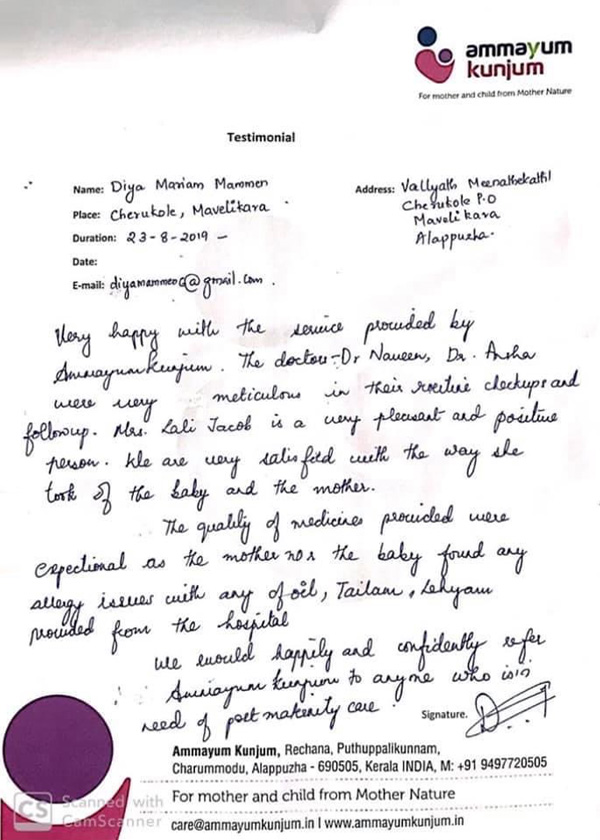 ammayum
kunjum
For mother and child from Mother Nature
Testimonial
Name: Diya Mariam Mammen
Place: Cherukole, Mavelikara
Duration: 23-8-2019 -
Date:
E-mail: @gmail.com.
Address: Vallyath Meenathekathil
Cherukole P.O
Mavelikara
Alappuzha.
Very happy with the service provided by
Ammayum Kunjum. The doctor-Dr Naveen, Dr. Asha
were very meticulous in their routine checkups and
followup. Mrs. Lali Jacob is a very pleasant and positive
person. We are very satisfied with the way she
took of the baby and the mother.
The quality of medicines provided were
expectional as the mother nor the baby found any
allergy issues with any of oil, Tailam, Lehyam
provided from the hospital
We would happily and confidently refer
Ammayum Kunjum to anyone who is in
need of post maternity care.
Signature.
Ammayum Kunjum, Rechana, Puthuppalikunnam,
Charummodu, Alappuzha - 690505, Kerala INDIA, M: +91 9497720505
For mother and child from Mother Nature
care@ammayumkunjum.in I www.ammayumkunjum.in
CS Scanned with
CamScanner